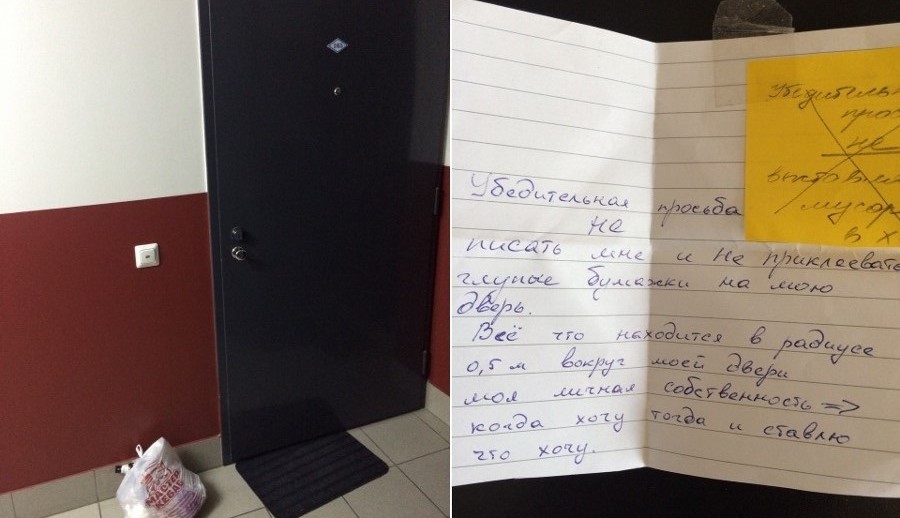 Убедительн
прос
не
выставля
мусор
в х
Убедительная просьба
не
писать мне и не приклеевать
глупые бумажки на мою
дверь.
Всё что находится в радиусе
0,5 м вокруг моей двери
моя личная собственность =>
когда хочу тогда и ставлю
что хочу.